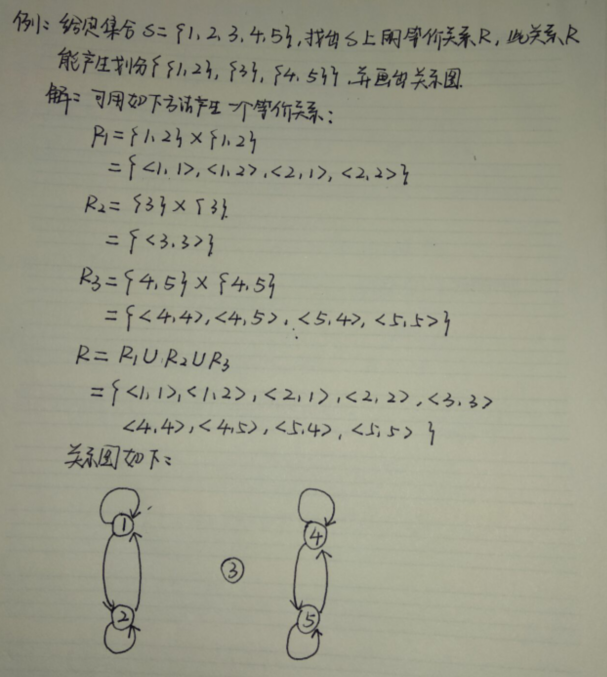 例1: 给定集合S={1,2,3,4,5},找出S上的等价关系R,此关系R
能产生划分{{1,2},{3},{4,5}}.并画出关系图.
解: 可用如下方法产生一个等价关系:
R1={1,2}×{1,2}
={<1,1>,<1,2>,<2,1>,<2,2>}
R2={3}×{3}
={<3,3>}
R3={4,5}×{4,5}
={<4,4>,<4,5>,<5,4>,<5,5>}
R=R1∪R2∪R3
={<1,1>,<1,2>,<2,1>,<2,2>,<3,3>
<4,4>,<4,5>,<5,4>,<5,5>}
关系图如下:
1
4
3
2
5